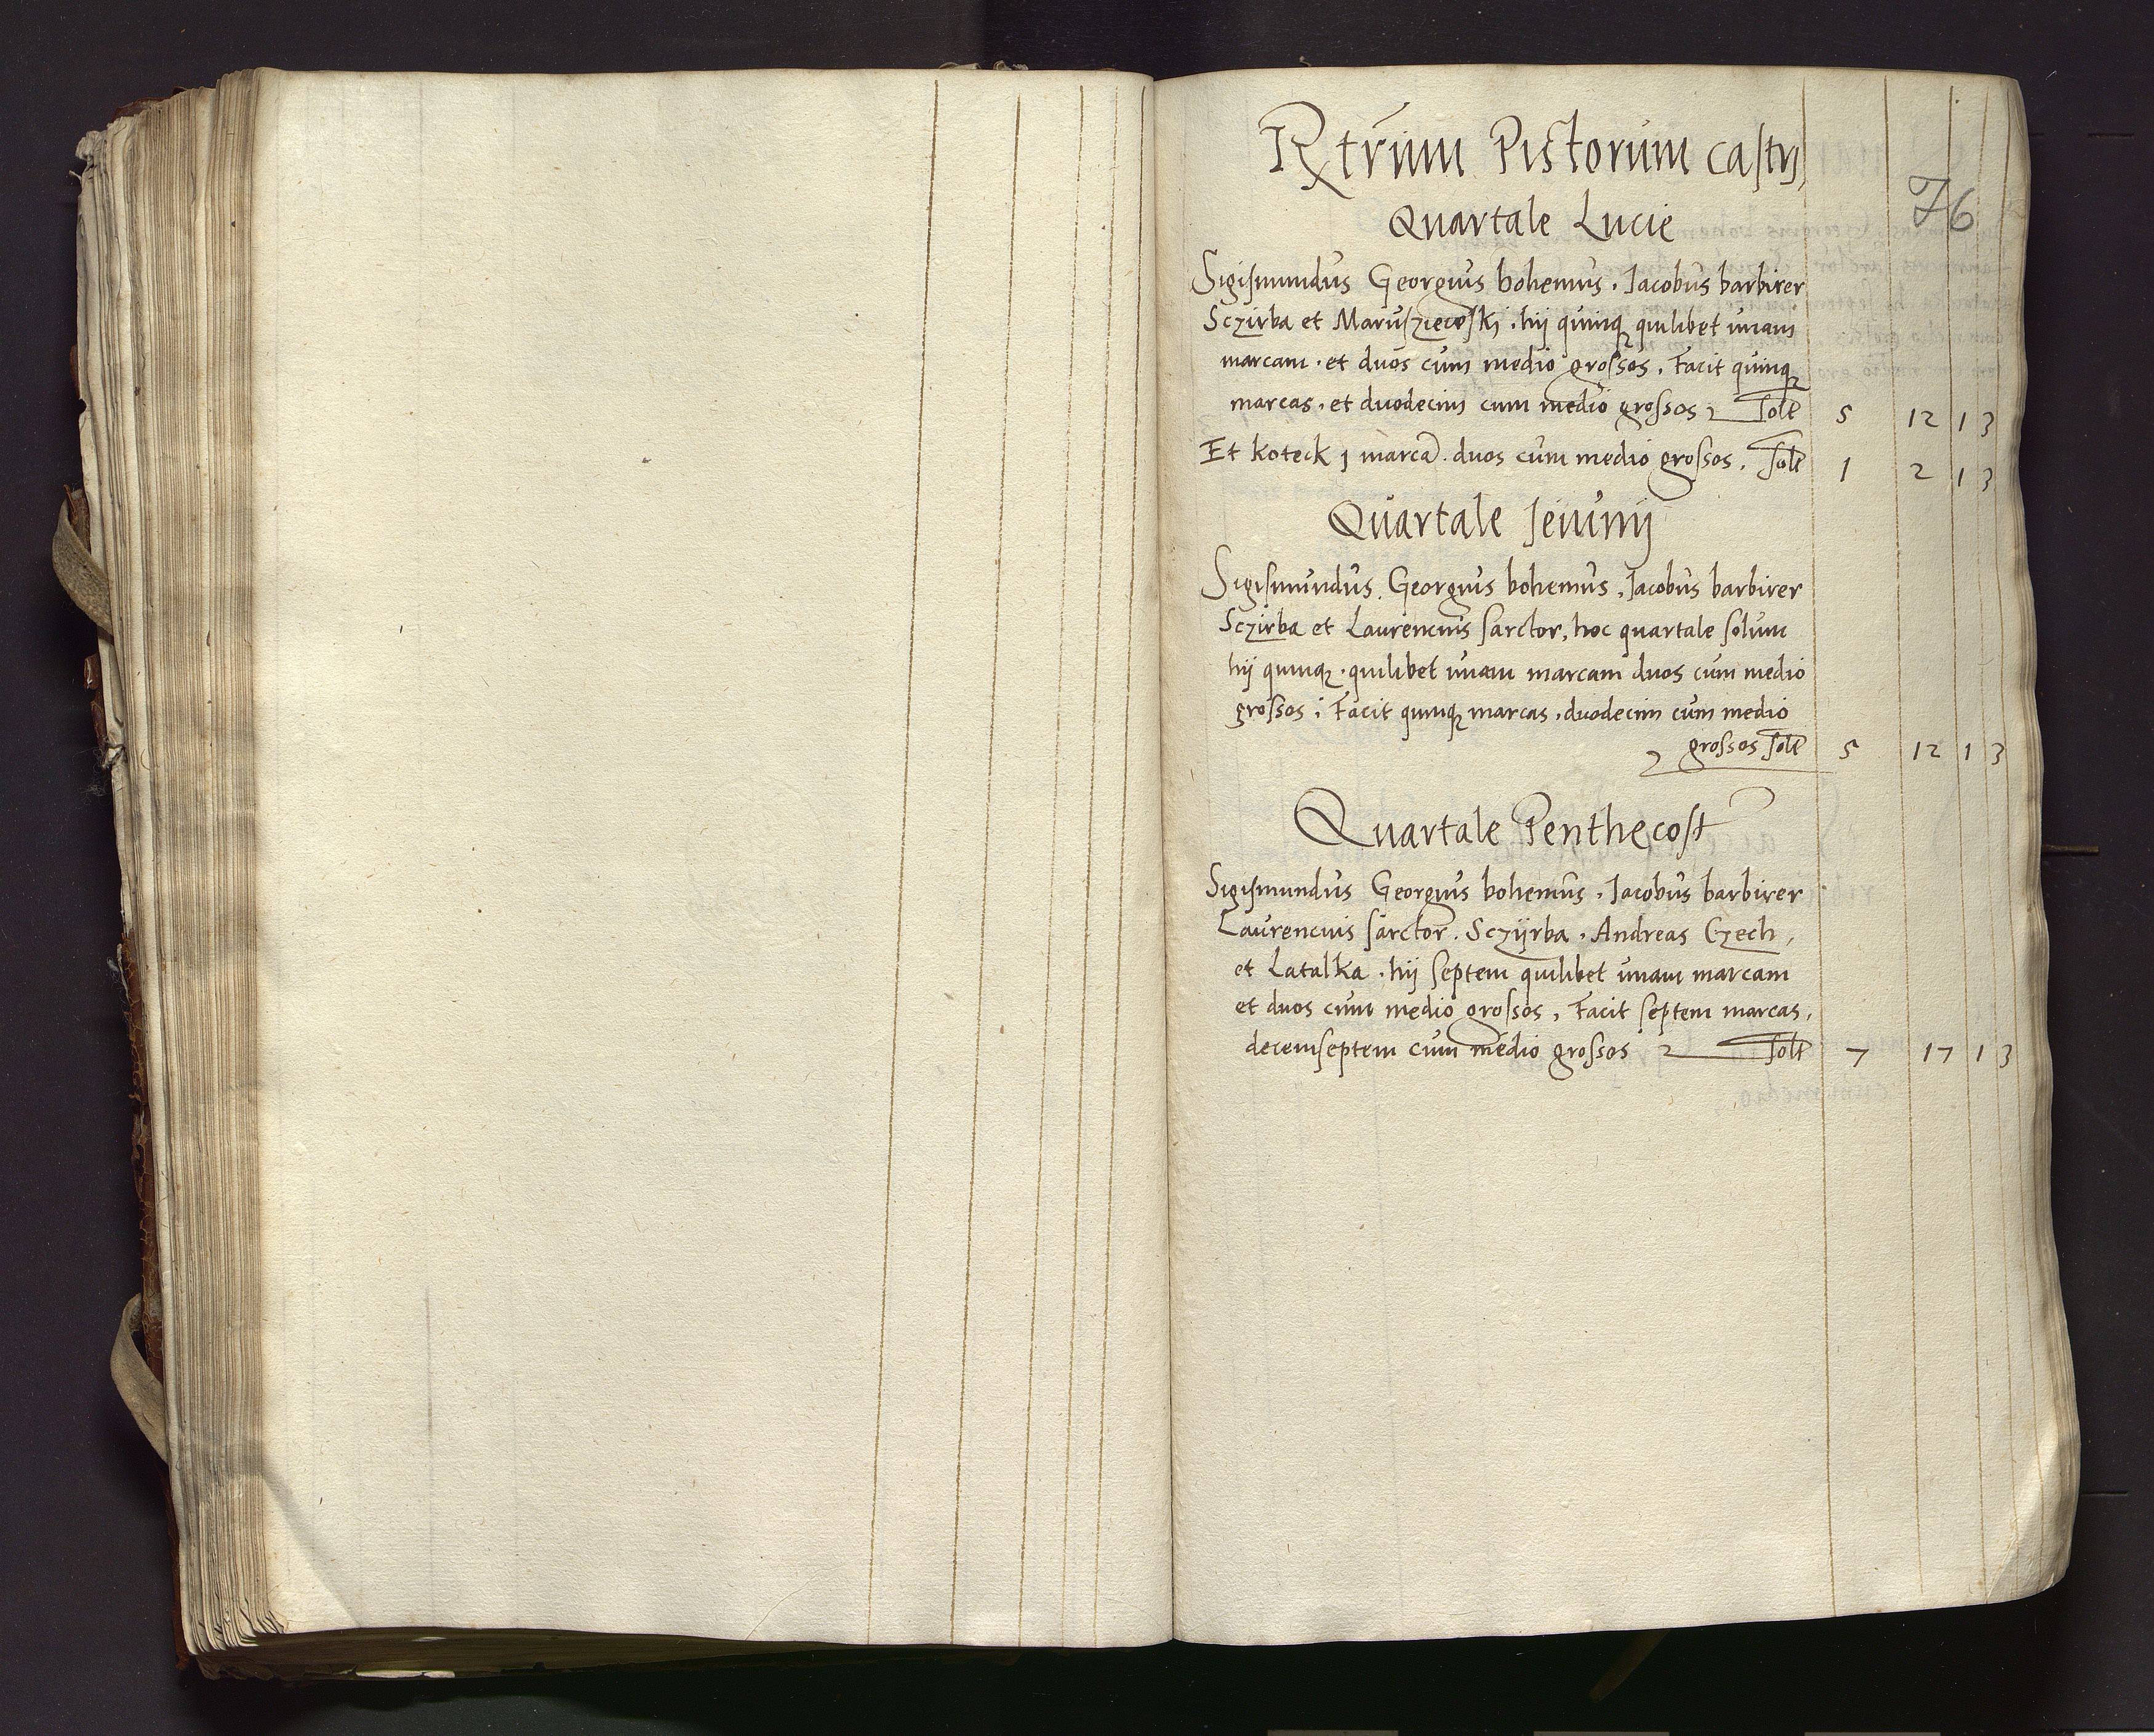 Rtrium Pistorum castrj
76
Quartale Lucie
Sigismundus Georgius bohemus. Jacobus barbirer
Sczirba et Maruszewskj. hij quinq quilibet unam
marcam. et duos cum medio grossos. Facit quinq
marcas. et duodecim cum medio grossos Solt 5 12 1 3
Et Koteck j marca. duos cum medio grossos. Solt 1 2 1 3
Quartale Jeiunij
Sigismundus. Georgius bohemus. Jacobus barbirer
Sczirba et Laurencius sarctor, hoc quartale solum
hij quinq. quilibet unam marcam duos cum medio
grossos; Facit quinq marcas. duodecim cum medio
grossos Solt 5 12 1 3
Quartale Penthecost
Sigismundus Georgius bohemus. Jacobus barbirer
Laurencius sarctor. Sczijrba. Andreas Czech,
et Latalka. hij septem quilibet unam marcam
et duos cum medio grossos, Facit septem marcas.
decemseptem cum medio grossos Solt 7 17 1 3